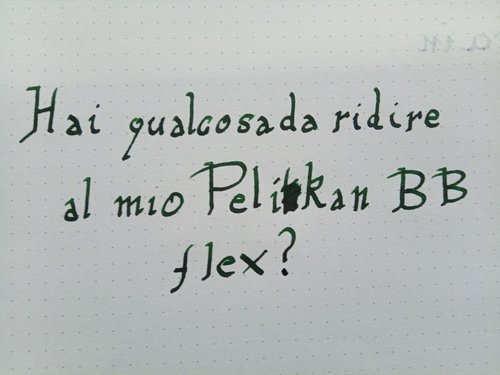 Hai qualcosada ridire
al mio Pelikan BB
flex?